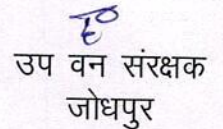 उप वन संरक्षक
जोधपुर